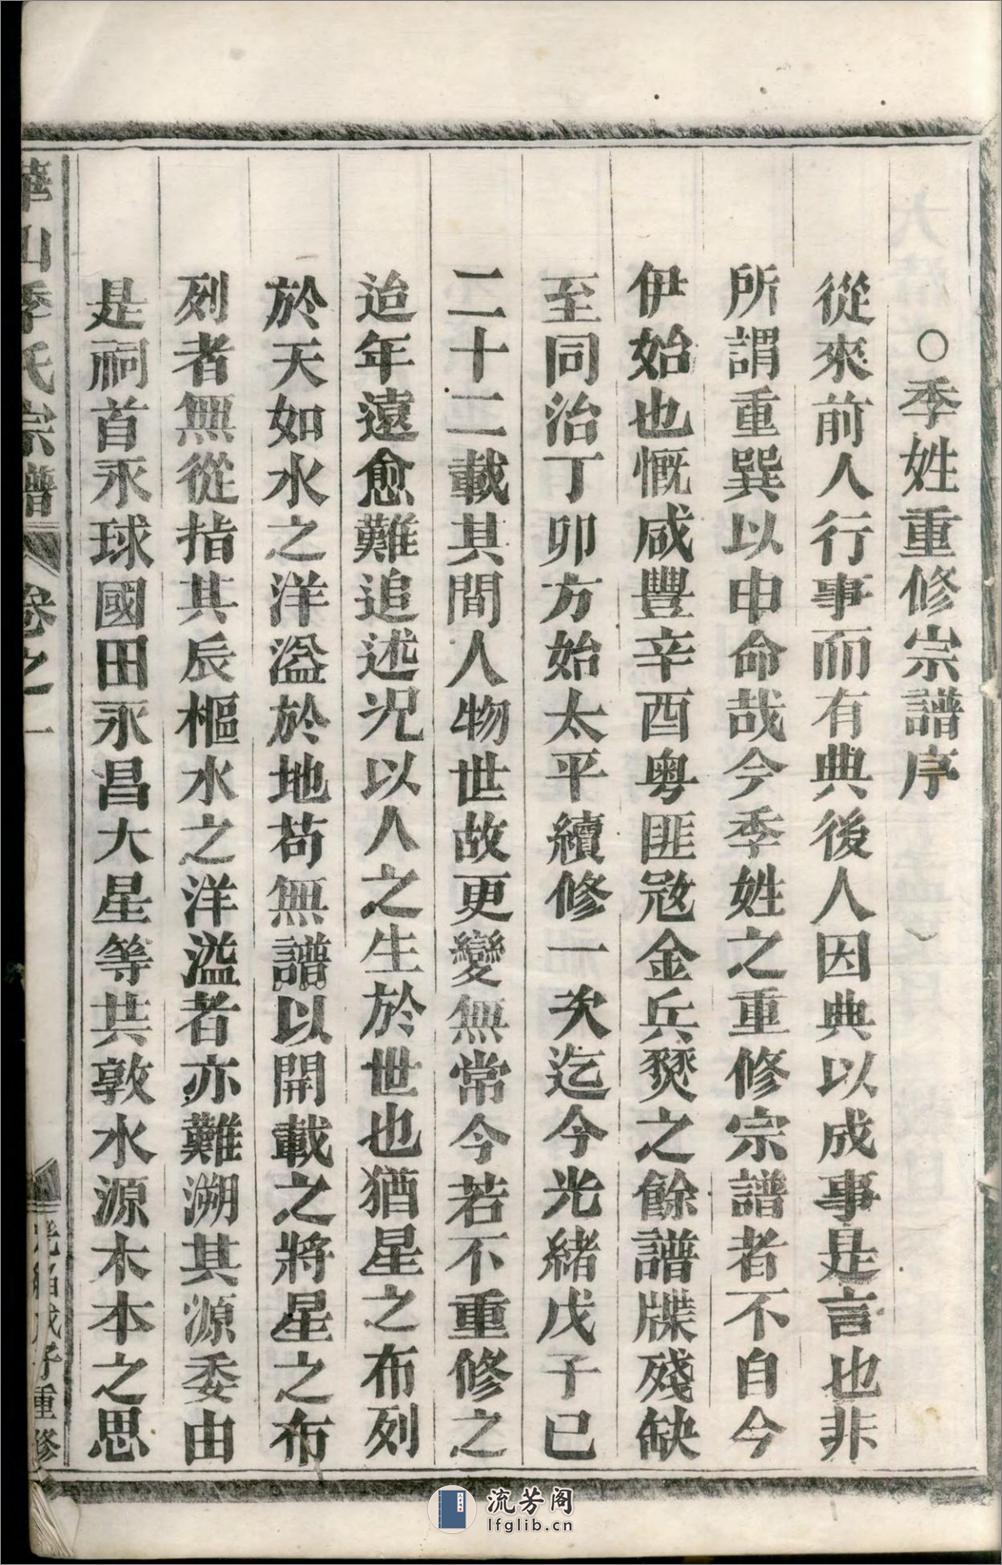 ○季姓重修宗譜序
從來前人行事而有典後人因典以成事是言也非
所謂重巽以申命哉今季姓之重修宗譜者不自今
伊始也慨咸豐辛酉粵匪冦金兵燹之餘譜牒殘缺
至同治丁卯方始太平續修一次迄今光緒戊子已
二十二載其間人物世故更變無常今若不重修之
迨年遠愈難追述况以人之生於世也猶星之布列
於天如水之洋溢於地苟無譜以開載之將星之布
列者無從指其辰樞水之洋溢者亦難溯其源委由
是祠首永球國田永昌大星等共敦水源木本之思
華山季氏宗譜 卷之一 光緒戊子重修
流芳阁
lfglib.cn